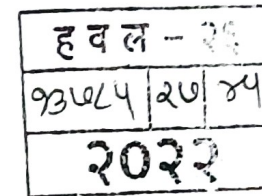 हवल -
१३७८५ २७ ४५
२०२२